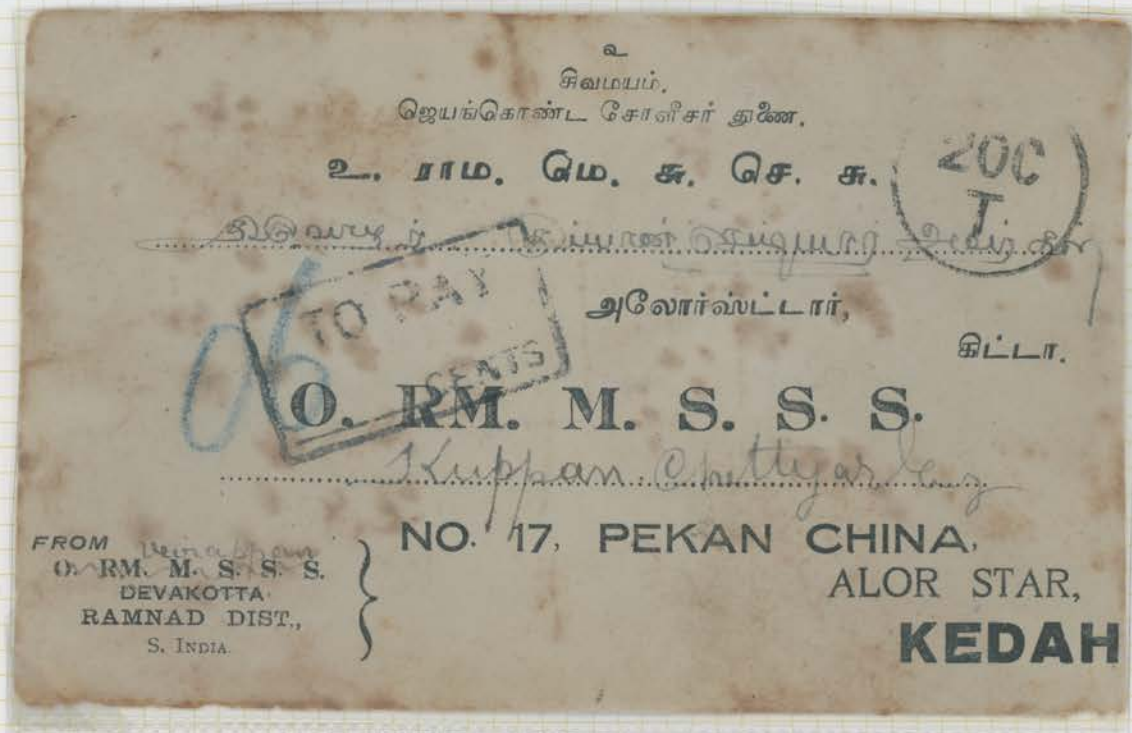 உ
சிவமயம்.
ஜெயங்கொண்ட சோளீசர் துணை.
உ. ராம. மெ. சு. செ. சு.
20C
T
குப்பான் செட்டியார் அவர்கள்
TO PAY
CENTS
06
அலோர்ஸ்ட்டார்,
கிட்டா.
O. RM. M. S. S. S.
Kuppan Chettyar
NO. 17, PEKAN CHINA,
ALOR STAR,
KEDAH
FROM
O. RM. M. S. S. S.
DEVAKOTTA
RAMNAD DIST.,
S. INDIA.